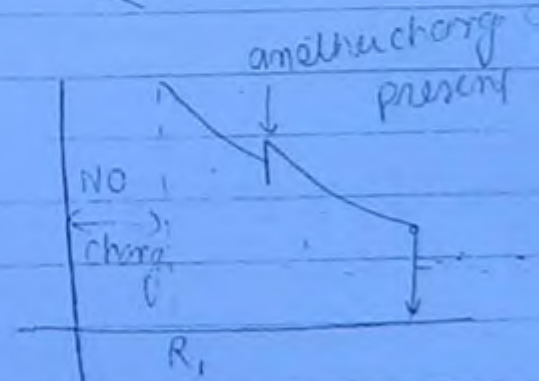 another charg
present
NO
Charg
R₁